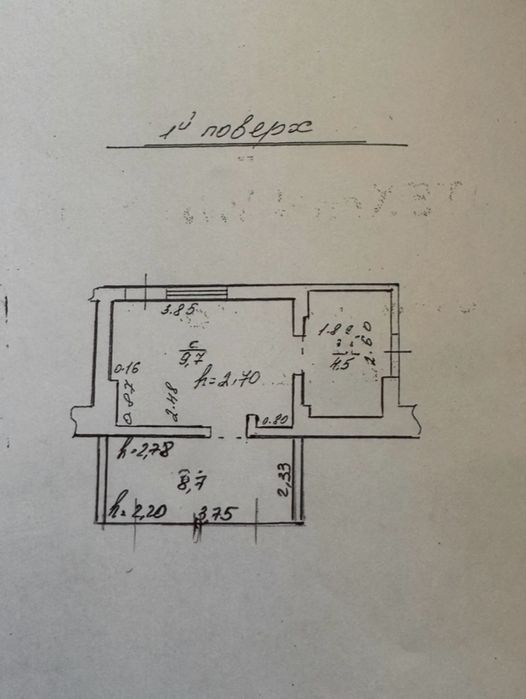 1й поверх
3.85
с
9,7
h=2,70
0.16
0.87
2.48
0.80
4.5
2.60
h=2,78
8,7
2,33
h=2,20
3,75